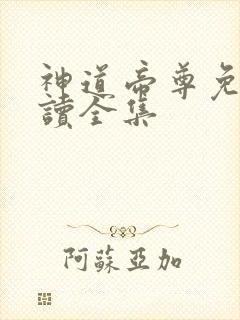 神道帝尊免
讀全集
阿蘇亞加